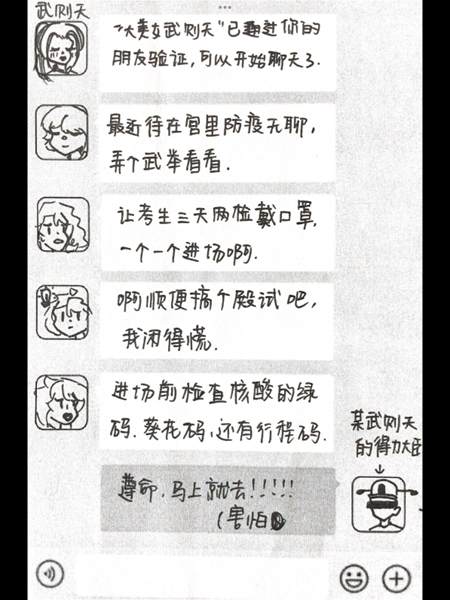 武则天
"大美女武则天"已通过你的
朋友验证,可以开始聊天了.
最近待在宫里防疫无聊,
弄个武举看看.
让考生三天两检戴口罩,
一个一个进场啊.
啊顺便搞个殿试吧,
我闭得慌.
进场前检查核酸的绿
码.葵花码,还有行程码.
某武则天
的得力大臣
遵命.马上就去!!!!!
(害怕